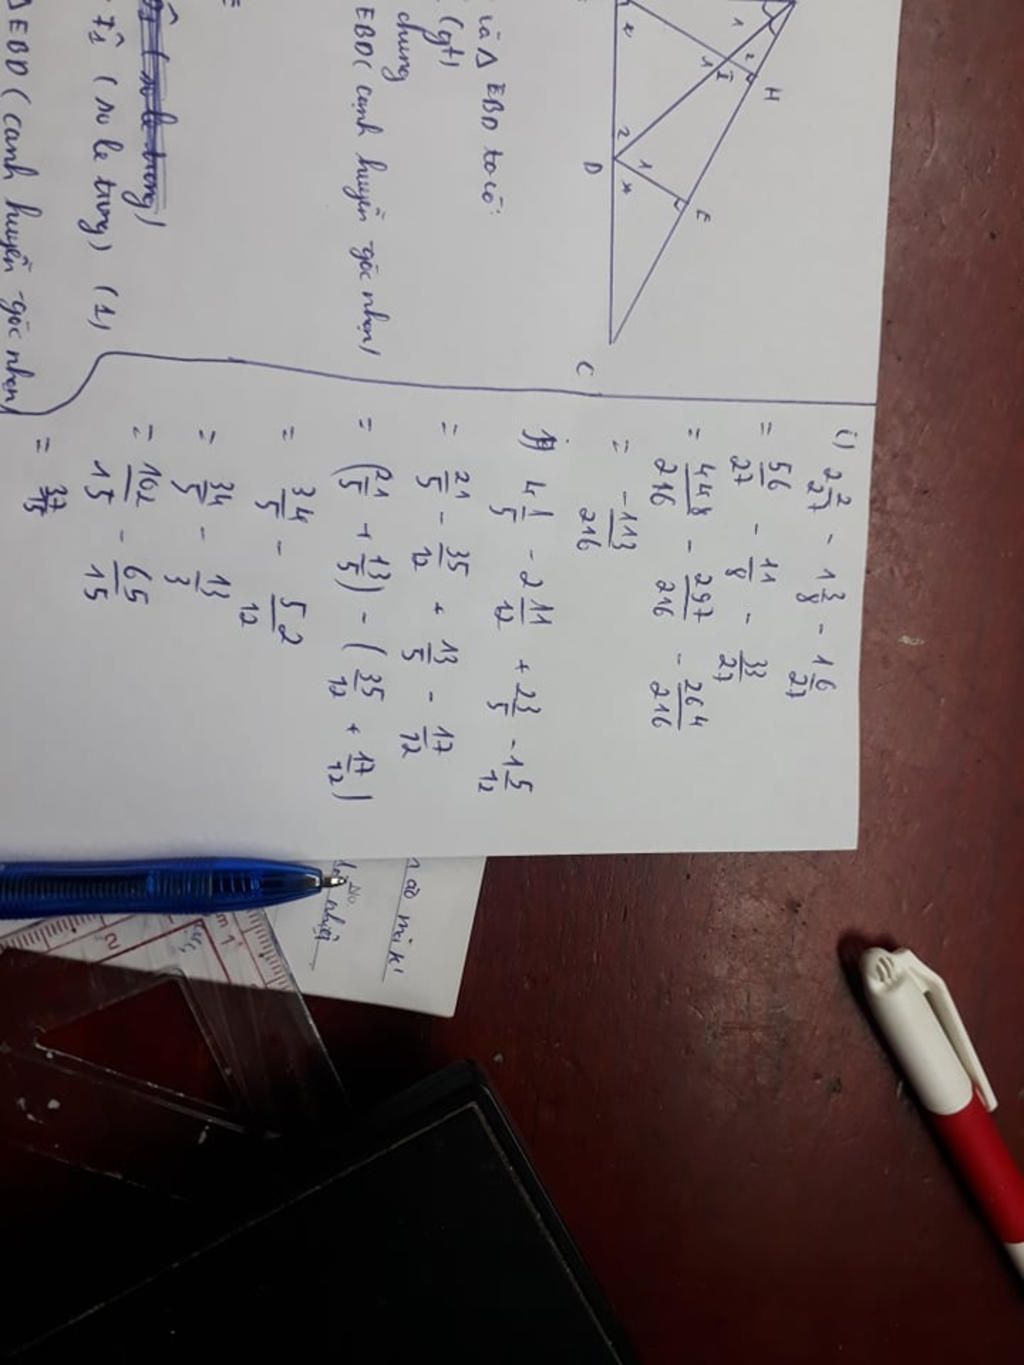 H
1
2
I
1
E
2
1
2
x
D
C
và Δ EBD ta có:
(gt)
chung
EBD (cạnh huyền - góc nhọn)
(so le trong)
(so le trong) (1)
Δ EBD (cạnh huyền - góc nhọn)
i) 2 2/27 - 1 3/8 - 1 6/27
= 56/27 - 11/8 - 33/27
= 448/216 - 297/216 - 264/216
= -113/216
j) 4 1/5 - 2 11/12 + 2 3/5 - 1 5/12
= 21/5 - 35/12 + 13/5 - 17/12
= (21/5 + 13/5) - (35/12 + 17/12)
= 34/5 - 52/12
= 34/5 - 13/3
= 102/15 - 65/15
= 37/15
No.